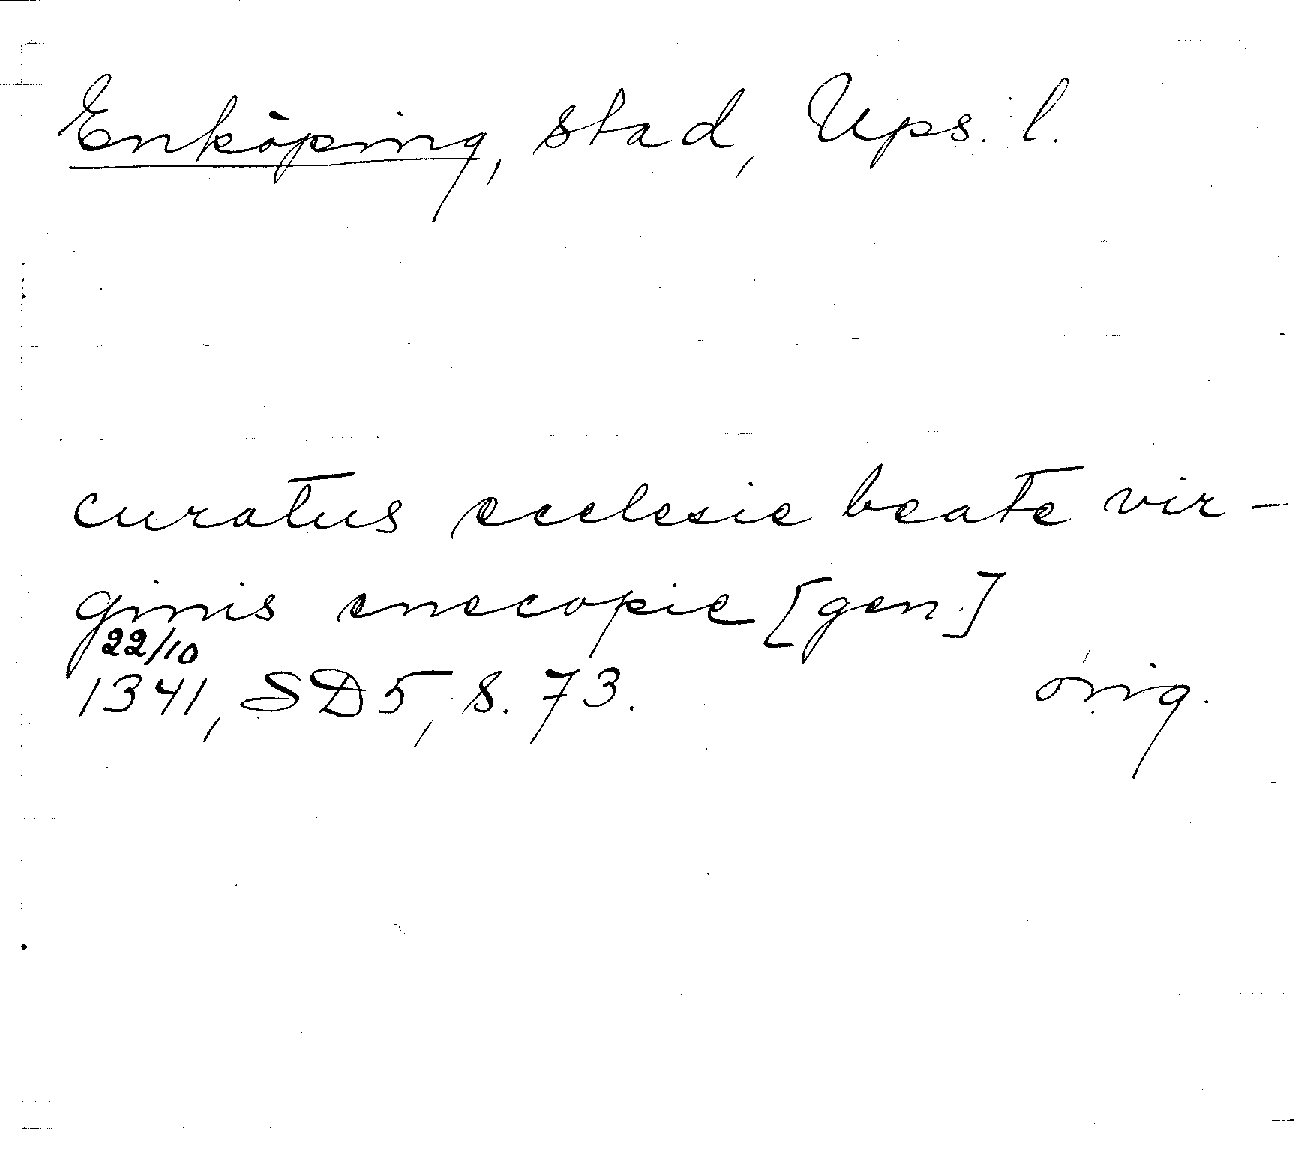 Enköping, stad, Ups. l.
curatus ecclesie beate vir-
ginis enecopie [gen.]
22/10
1341, SD5, s. 73. orig.